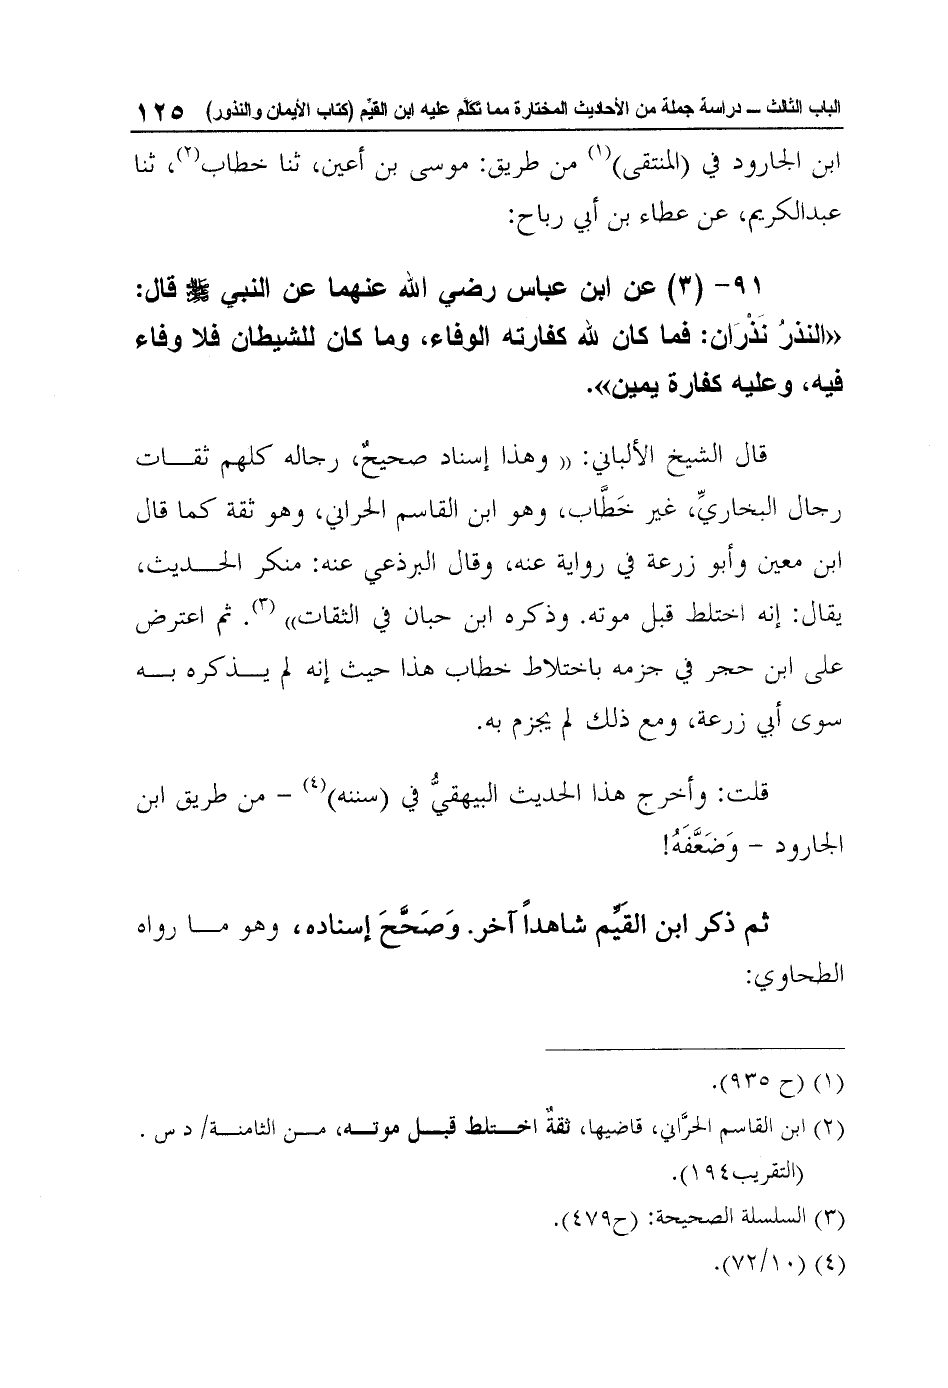 الباب الثالث ــ دراسة جملة من الأحاديث المختارة مما تكلَّم عليه ابن القيِّم (كتاب الأيمان والنذور) ١٢٥
ابن الجارود في (المنتقى)(١) من طريق: موسى بن أعين، ثنا خطاب(٢)، ثنا
عبدالكريم، عن عطاء بن أبي رباح:
٩١- (٣) عن ابن عباس رضي الله عنهما عن النبي ﷺ قال:
«النذرُ نَذْرَان: فما كان لله كفارته الوفاء، وما كان للشيطان فلا وفاء
فيه، وعليه كفارة يمين».
قال الشيخ الألباني: « وهذا إسناد صحيحٌ، رجاله كلهم ثقـــات
رجال البخاريِّ، غير خَطَّاب، وهو ابن القاسم الحراني، وهو ثقة كما قال
ابن معين وأبو زرعة في رواية عنه، وقال البرذعي عنه: منكر الحـــديث،
يقال: إنه اختلط قبل موته. وذكره ابن حبان في الثقات» (٣). ثم اعترض
على ابن حجر في جزمه باختلاط خطاب هذا حيث إنه لم يـــذكره بـــه
سوى أبي زرعة، ومع ذلك لم يجزم به.
قلت: وأخرج هذا الحديث البيهقيُّ في (سننه)(٤) - من طريق ابن
الجارود - وَضَعَّفَهُ!
ثم ذكر ابن القَيِّم شاهداً آخر. وَصَحَّحَ إسناده، وهو مـــا رواه
الطحاوي:
(١) (ح ٩٣٥).
(٢) ابن القاسم الحرَّاني، قاضيها، ثقةٌ اختـــلط قبـــل موتـــه، مـــن الثامنـــة/ د س .
(التقريب١٩٤).
(٣) السلسلة الصحيحة: (ح٤٧٩).
(٤) (٧٢/١٠).